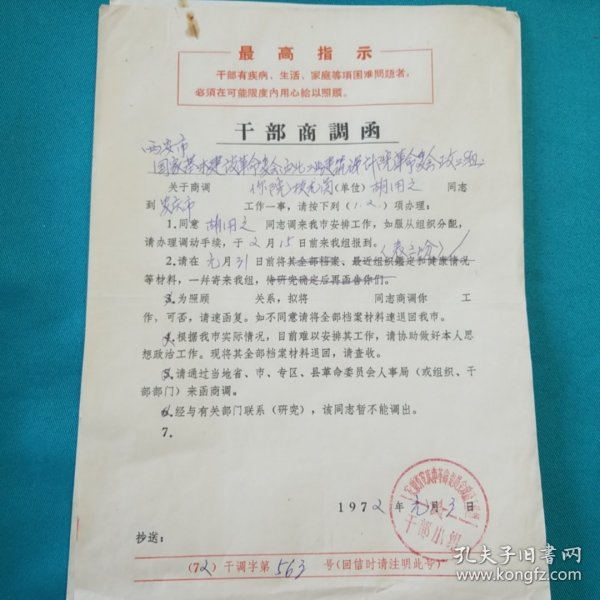 最高指示
干部有疾病、生活、家庭等項困难問題者,
必須在可能限度内用心給以照顾。
干部商調函
西安市
国家基本建设革命委会西北工业建筑设计院革命委会政工组:
关于商调 你院 (单位) 胡用之 同志
到 安庆市 工作一事，请按下列（1.2.）项办理：
1.同意 胡用之 同志调来我市安排工作，如服从组织分配，
请办理调动手续，于2月15日前来我组报到。
2.请在元月31日前将其全部档案、最近组织鉴定和健康情况
等材料，一并寄来我组，待研究确定后再函告你们。
3.为照顾 关系，拟将 同志商调你 工
作，可否，请速函复。如不同意请将全部档案材料速退回我市。
4.根据我市实际情况，目前难以安排其工作，请协助做好本人思
想政治工作。现将其全部档案材料退回，请查收。
5.请通过当地省、市、专区、县革命委员会人事局（或组织、干
部部门）来函商调。
6.经与有关部门联系（研究），该同志暂不能调出。
7.
1972年元月3日
干部小组
抄送：
(72) 干调字第 563 号(回信时请注明此号)
孔夫子旧书网
www.kongfz.com